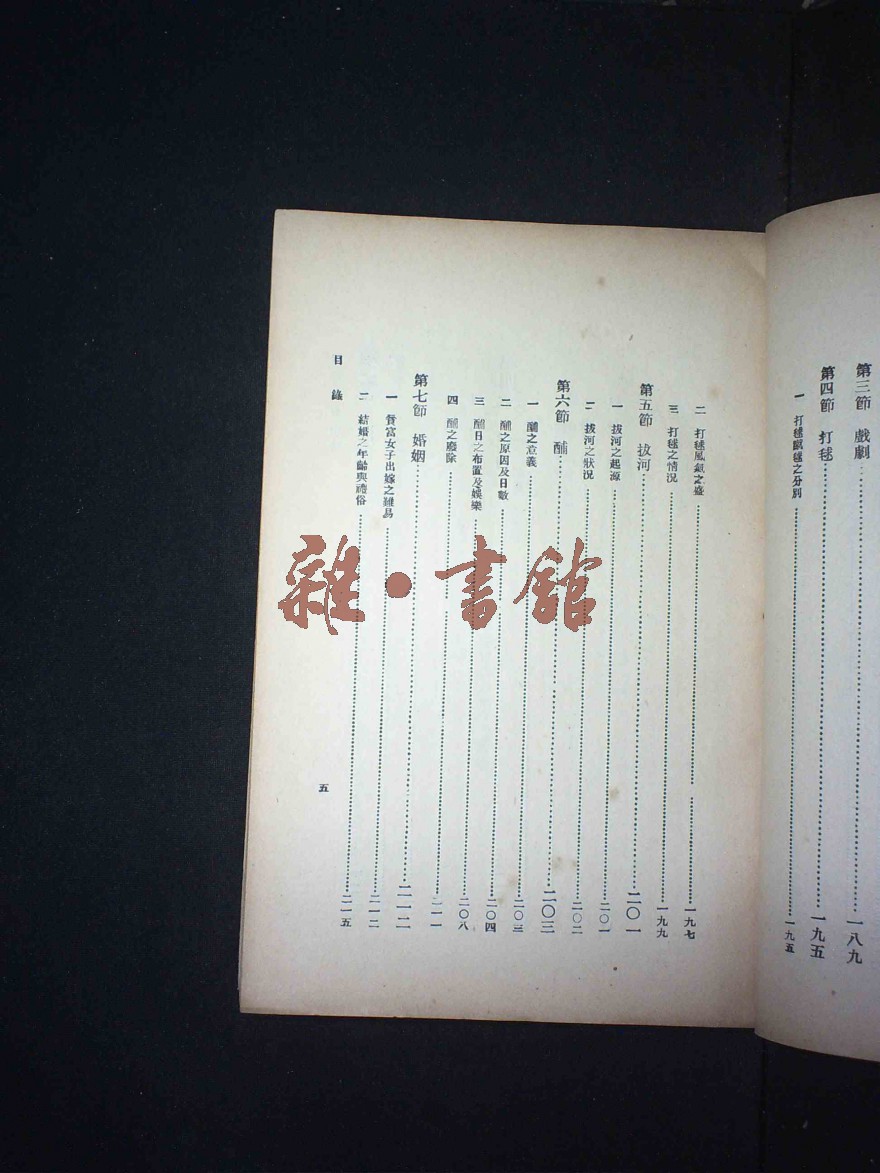 第三節 戲劇 一八九
第四節 打毬 一九五
一 打毬蹴毬之分別 一九五
二 打毬風氣之盛 一九七
三 打毬之情況 一九九
第五節 拔河 二〇一
一 拔河之起源 二〇一
二 拔河之狀況 二〇二
第六節 酺 二〇三
一 酺之意義 二〇三
二 酺之原因及日數 二〇四
三 酺日之布置及娛樂 二〇八
四 酺之廢除 二一一
第七節 婚姻 二一二
一 貧富女子出嫁之難易 二一二
二 結婚之年齡與禮俗 二一五
目錄
五
雜·書館